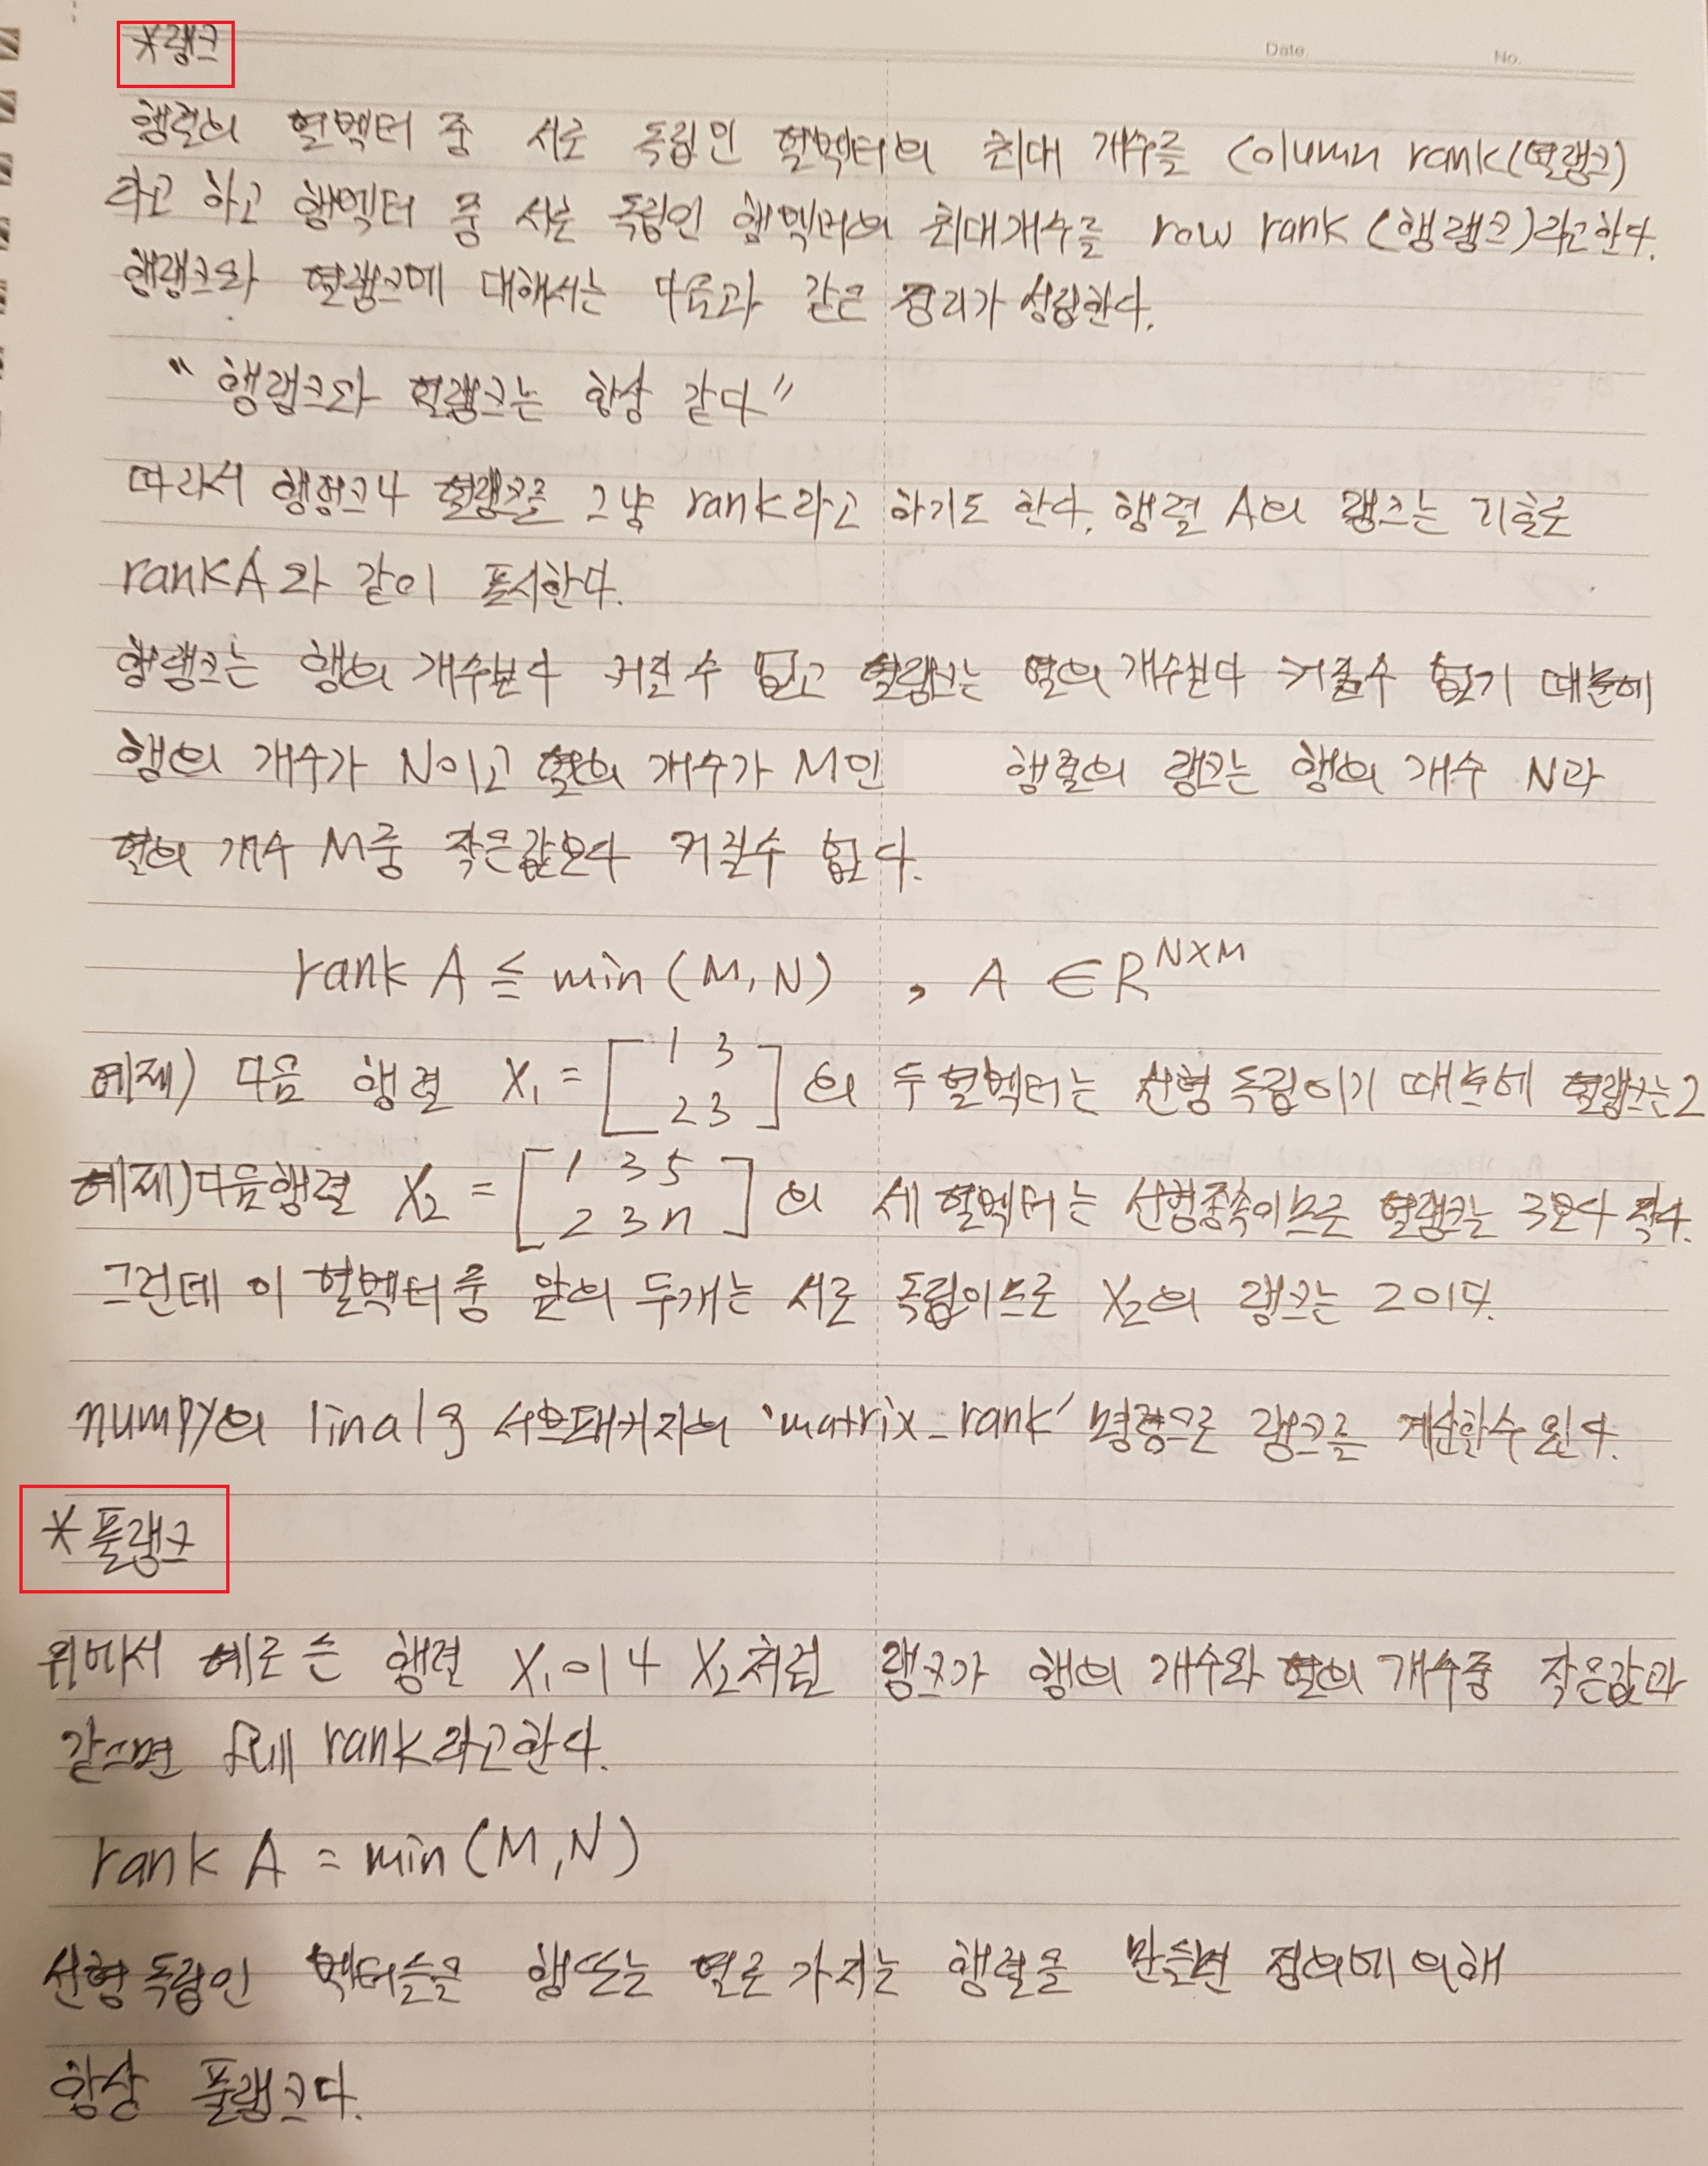 *랭크
Date. No.
행렬의 열벡터 중 서로 독립인 열벡터의 최대 개수를 column rank(열랭크)
라고 하고 행벡터 중 서로 독립인 행벡터의 최대개수를 row rank (행랭크)라고한다.
행랭크와 열랭크에 대해서는 다음과 같은 정리가 성립한다.
“행랭크와 열랭크는 항상 같다”
따라서 행랭크나 열랭크를 그냥 rank라고 하기도 한다. 행렬 A의 랭크는 기호로
rank A 와 같이 표시한다.
행랭크는 행의 개수보다 커질 수 없고 열랭크는 열의 개수보다 커질수 없기 때문에
행의 개수가 N이고 열의 개수가 M인 행렬의 랭크는 행의 개수 N과
열의 개수 M중 작은값보다 커질수 없다.
rank A ≦ min (M, N) , A ∈ R^{N×M}
예제) 다음 행렬 X₁ = [1 3; 2 3] 의 두 열벡터는 선형 독립이기 때문에 열랭크는2
예제)다음행렬 X₂ = [1 3 5; 2 3 n] 의 세 열벡터는 선형종속이므로 열랭크는 3보다 작다.
그런데 이 열벡터 중 앞의 두개는 서로 독립이므로 X₂의 랭크는 2이다.
numpy의 linalg 서브패키지의 ‘matrix_rank’ 명령으로 랭크를 계산할수 있다.
*풀랭크
위에서 예로 든 행렬 X₁이나 X₂처럼 랭크가 행의 개수와 열의 개수중 작은값과
같으면 full rank라고한다.
rank A = min (M, N)
선형독립인 벡터들을 행또는 열로 가지는 행렬을 만들면 정의에 의해
항상 풀랭크다.